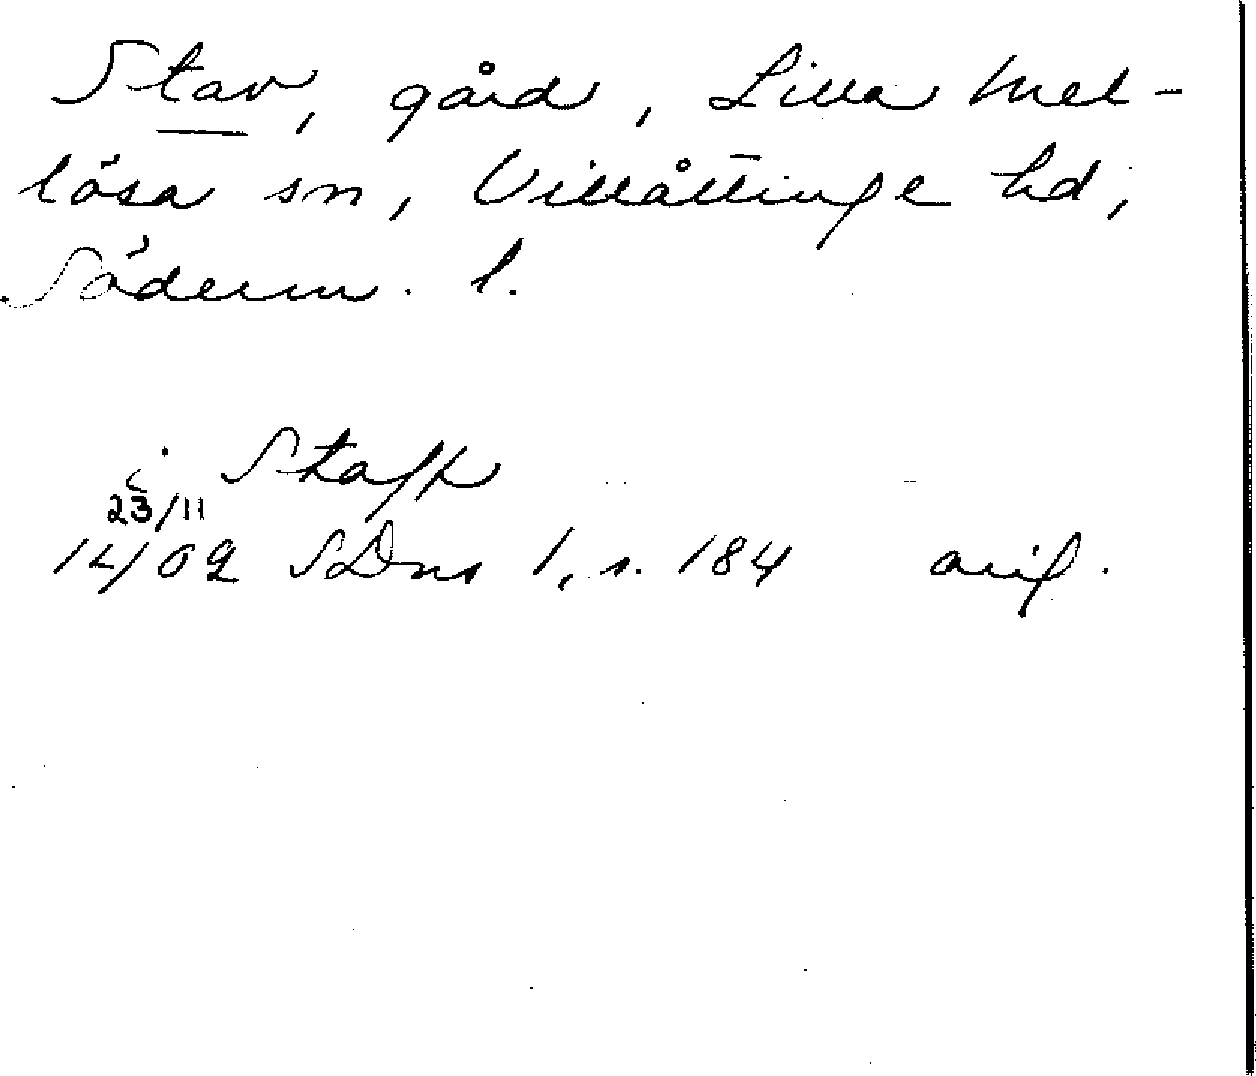 Stav, gård, Lilla Mel-
lösa sn, Villåttinge hd,
Söderm. l.
i Staff
23/11
1402 SDns 1, s. 184 avig.